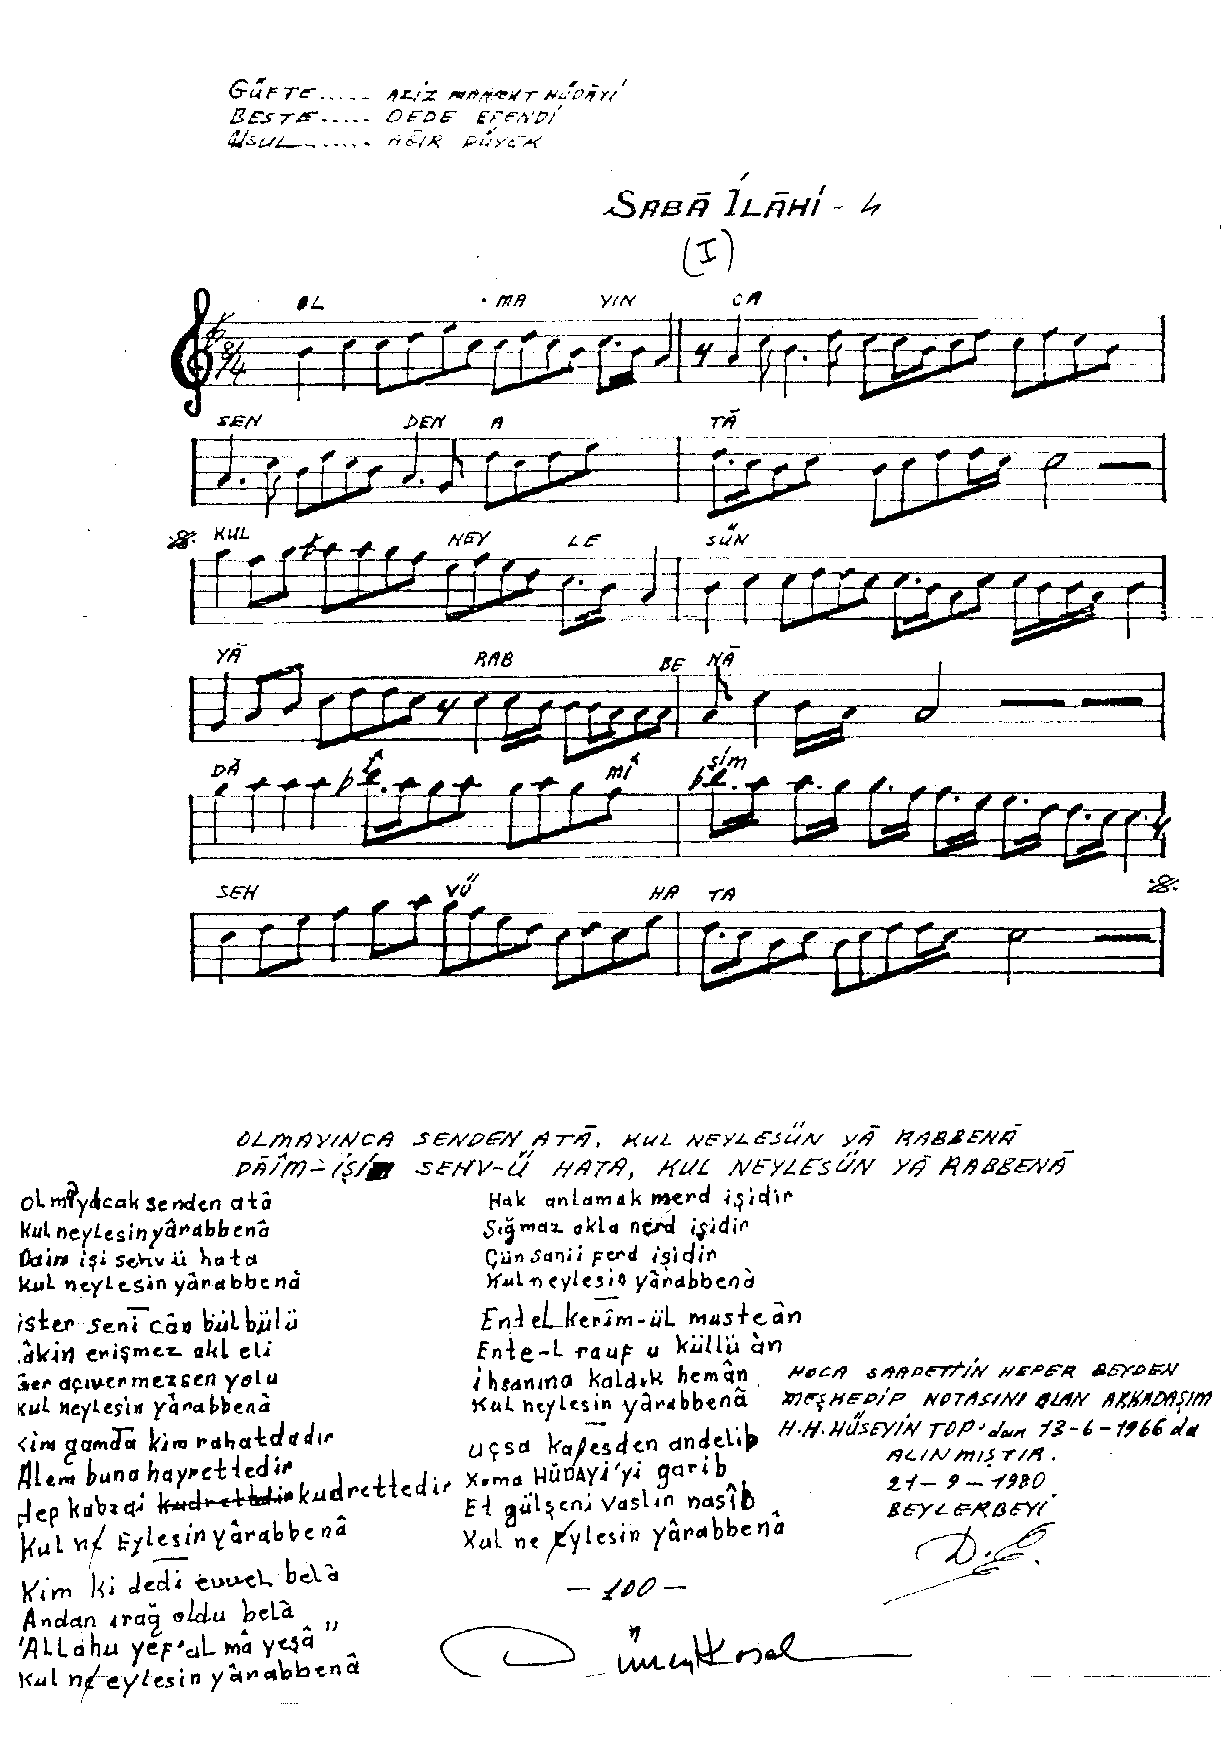 GÜFTE..... AZİZ MAHMUT HÜDÂYİ
BESTE..... DEDE EFENDİ
USUL....... AĞIR DÜYEK
SABÂ İLÂHİ - 4
(I)
8/4
OL MA YIN CA
SEN DEN A TĀ
KUL NEY LE SÜN
YĀ RAB BE NĀ
DÂ Î MÎ ŞİM
SEH VÜ HA TA
OLMAYINCA SENDEN ATĀ, KUL NEYLESÜN YĀ RABBENĀ
DÂÎM-İŞİM SEHV-Ü HATA, KUL NEYLESÜN YĀ RABBENĀ
Olmıyacak senden atâ
Kul neylesin yârabbenâ
Daim işi sehv ü hata
Kul neylesin yârabbenâ
ister seni cân bülbülü
âkin erişmez akl eli
Ger açıvermezsen yolu
Kul neylesin yârabbenâ
Kim gamda kim rahatdadır
Âlem buna hayrettedir
Hep kabzai kudrettedir kudrettedir
Kul ne Eylesin yârabbenâ
Kim ki dedi evvel belâ
Andan ırağ oldu belâ
'Allahu yef'al mâ yeşâ"
Kul ne eylesin yârabbenâ
Hak anlamak merd işidir
Sığmaz akla nerd işidir
Çün sanii ferd işidir
Kul neylesin yârabbenâ
Entel kerîm-ül musteân
Ente-l rauf u küllü ân
ihsanına kaldık hemân
Kul neylesin yârabbenâ
uçsa kafesden andelib
Koma HÜDAYİ'yi garib
Et gülşeni vaslın nasîb
Kul ne Eylesin yârabbenâ
HOCA SAADETTİN HEPER BEYDEN
MEŞKEDİP NOTASINI ALAN ARKADAŞIM
H.H. HÜSEYİN TOP'dan 13-6-1966 da
ALINMIŞTIR.
21-9-1980
BEYLERBEYİ
D.E.
- 100 -